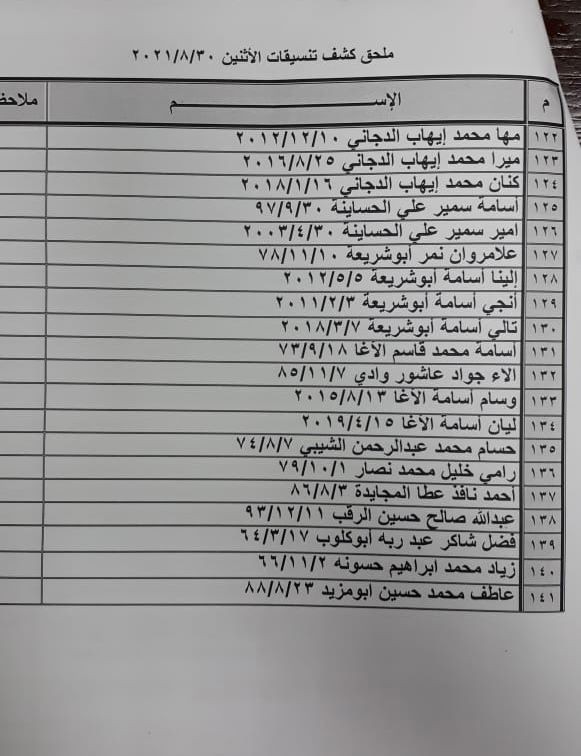 ملحق كشف تنسيقات الأثنين ٢٠٢١/٨/٣٠
م الإســـــــــــم ملاحظ
١٢٢ مها محمد إيهاب الدجاني ٢٠١٢/١٢/١٠
١٢٣ ميرا محمد إيهاب الدجاني ٢٠١٦/٨/٢٥
١٢٤ كنان محمد إيهاب الدجاني ٢٠١٨/١/١٦
١٢٥ أسامة سمير علي الحساينة ٩٧/٩/٣٠
١٢٦ امير سمير علي الحساينة ٢٠٠٣/٤/٣٠
١٢٧ علامروان نمر أبوشريعة ٧٨/١١/١٠
١٢٨ إلينا أسامة أبوشريعة ٢٠١٢/٥/٥
١٢٩ أنجي أسامة أبوشريعة ٢٠١١/٢/٣
١٣٠ تالي أسامة أبوشريعة ٢٠١٨/٣/٧
١٣١ أسامة محمد قاسم الأغا ٧٣/٩/١٨
١٣٢ الاء جواد عاشور وادي ٨٥/١١/٧
١٣٣ وسام أسامة الأغا ٢٠١٥/٨/١٣
١٣٤ ليان أسامة الأغا ٢٠١٩/٤/١٥
١٣٥ حسام محمد عبدالرحمن الشيبي ٧٤/٨/٧
١٣٦ رامي خليل محمد نصار ٧٩/١٠/١
١٣٧ أحمد نافذ عطا المجايدة ٨٦/٨/٣
١٣٨ عبدالله صالح حسين الرقب ٩٣/١٢/١١
١٣٩ فضل شاكر عبد ربه أبوكلوب ٦٤/٣/١٧
١٤٠ زياد محمد ابراهيم حسونه ٦٦/١١/٢
١٤١ عاطف محمد حسين ابومزيد ٨٨/٨/٢٣